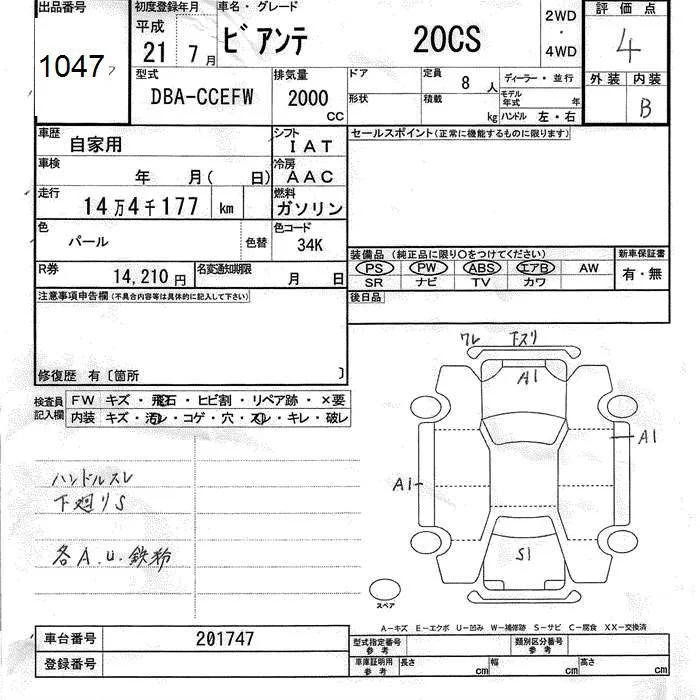 出品番号 初度登録年月 車名・グレード 2WD・4WD 評価点
1047 平成 21 7月 ビアンテ 20CS 4
型式 排気量 ドア 定員 8人 ディーラー・並行 外装 内装
DBA-CCEFW 2000 CC 形状 積載 kg モデル年式 年 ハンドル 左・右 B
車歴 自家用 シフト IAT セールスポイント(正常に機能するものに限ります)
車検 年 月( 日) 冷房 AAC
走行 14万4千177 km 燃料 ガソリン
色 パール 色替 色コード 34K
装備品(純正品に限り○をつけてください) 新車保証書
PS PW ABS エアB AW 有・無
SR ナビ TV カワ
R券 14,210円 名変通知期限 月 日
後日品
注意事項申告欄(不具合内容等は具体的に記入して下さい)
修復歴 有〔箇所 〕
検査員記入欄 FW キズ・飛石・ヒビ割・リペア跡・×要
内装 キズ・汚レ・コゲ・穴・スレ・キレ・破レ
ワレ 下スリ
A1
A1
A1
S1
ハンドルスレ
下廻りS
各A.U.鉄粉
スペア
A-キズ E-エクボ U-凹み W-補修跡 S-サビ C-腐食 XX-交換済
車台番号 201747 型式指定番号 参考 類別区分番号 参考
登録番号 車庫証明用 参考 長さ cm 幅 cm 高さ cm